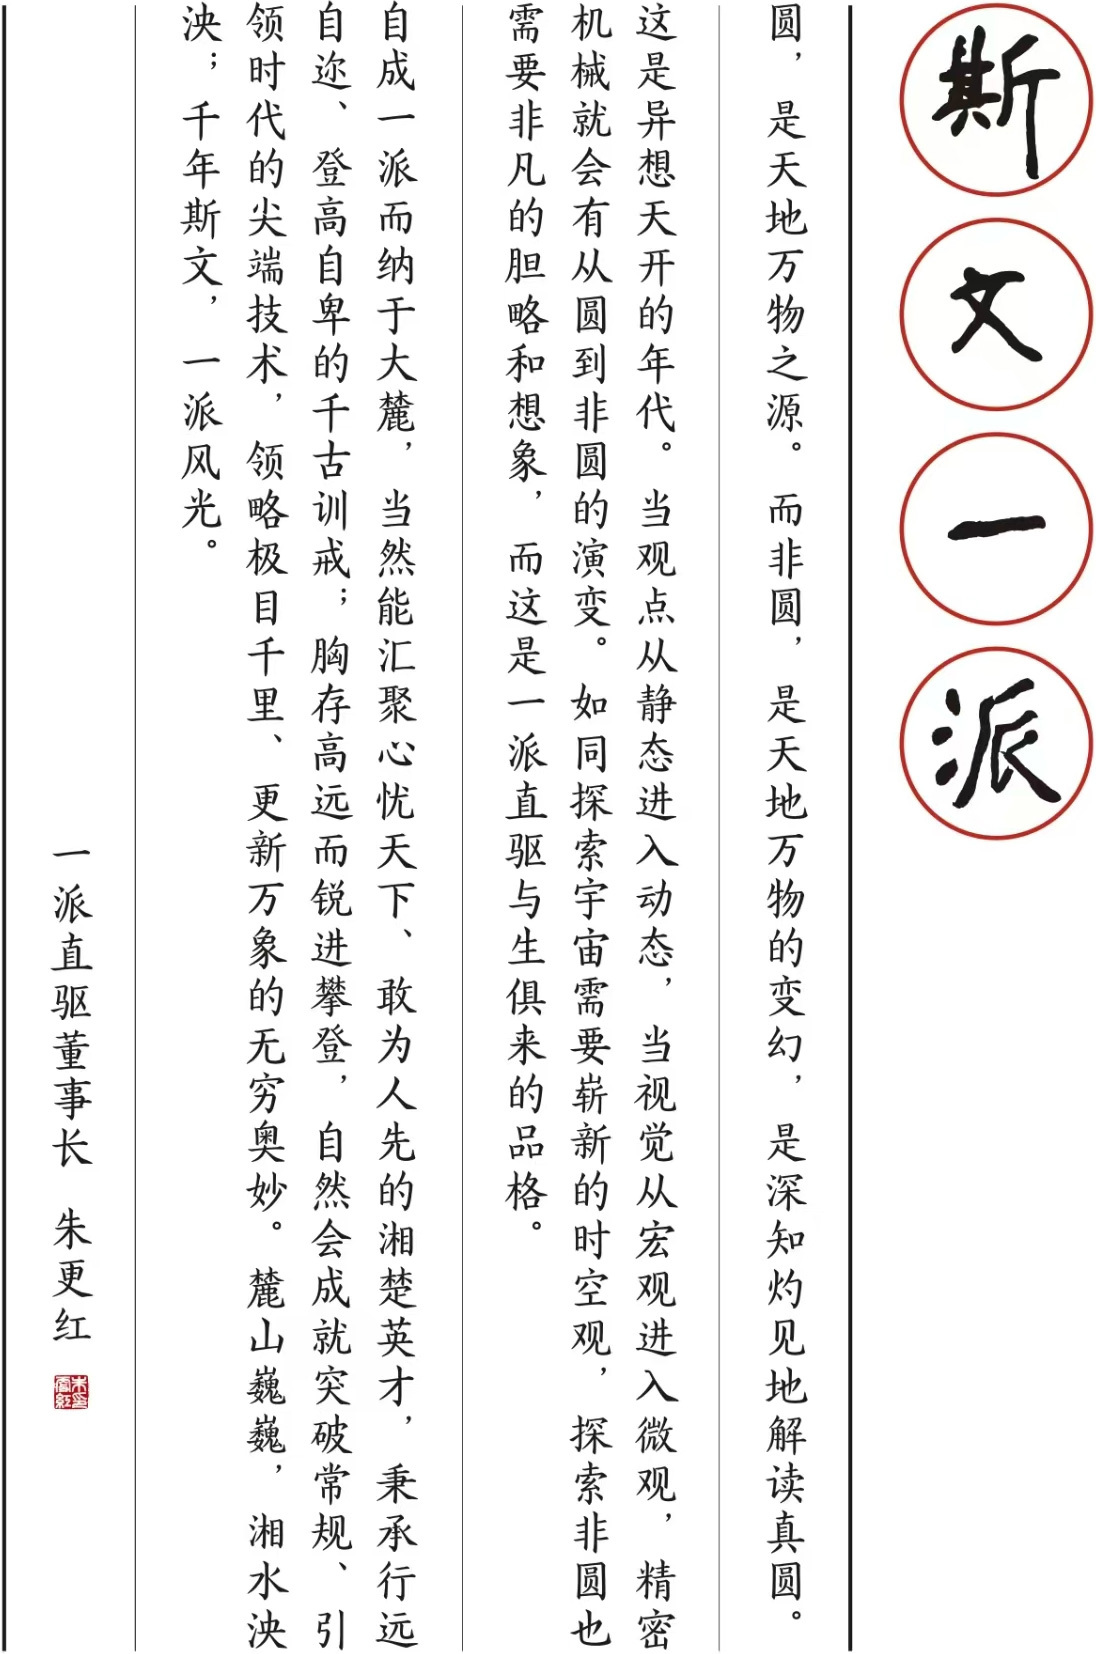 斯文一派
圆，是天地万物之源。而非圆，是天地万物的变幻，是深知灼见地解读真圆。
这是异想天开的年代。当观点从静态进入动态，当视觉从宏观进入微观，精密
机械就会有从圆到非圆的演变。如同探索宇宙需要崭新的时空观，探索非圆也
需要非凡的胆略和想象，而这是一派直驱与生俱来的品格。
自成一派而纳于大麓，当然能汇聚心忧天下、敢为人先的湘楚英才，秉承行远
自迩、登高自卑的千古训戒；胸存高远而锐进攀登，自然会成就突破常规、引
领时代的尖端技术，领略极目千里、更新万象的无穷奥妙。麓山巍巍，湘水泱
泱；千年斯文，一派风光。
一派直驱董事长 朱更红
朱更红印